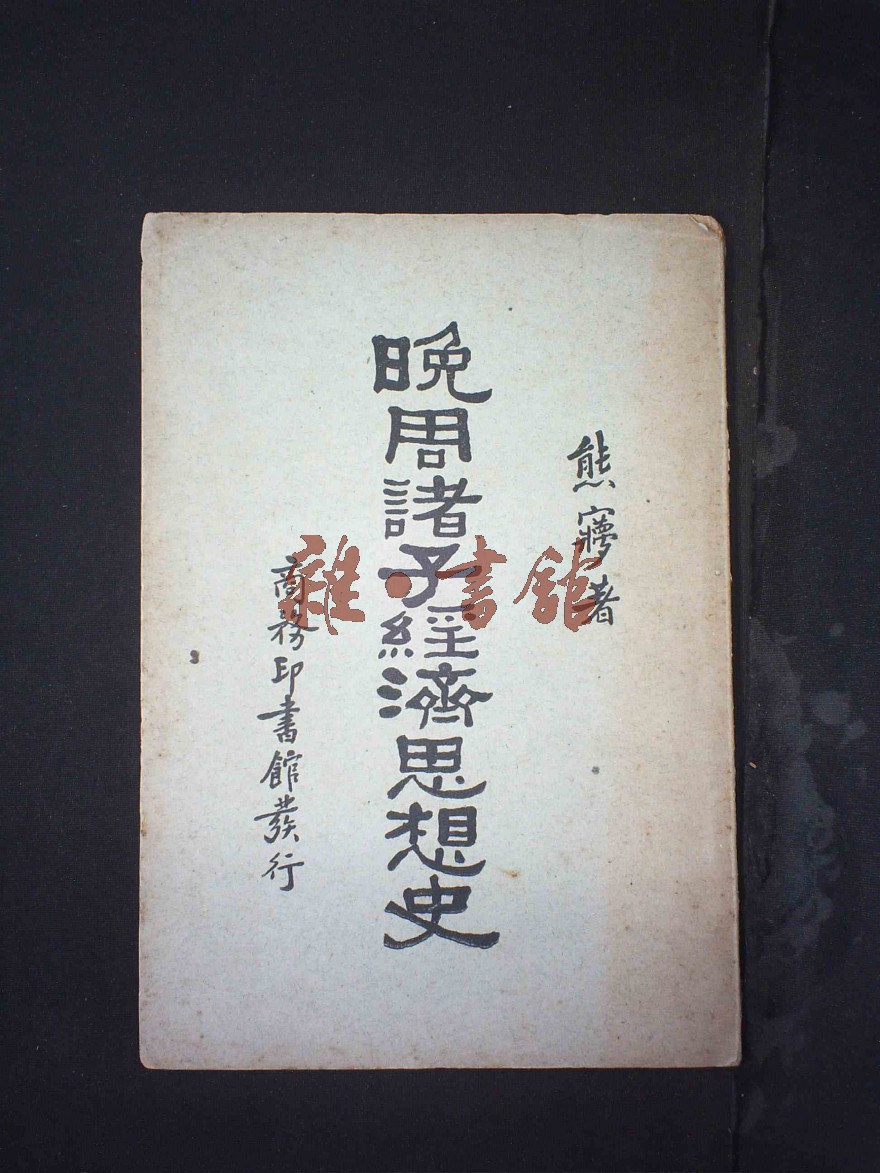 熊㝱著
晚周諸子經濟思想史
商務印書館發行
雜·書館